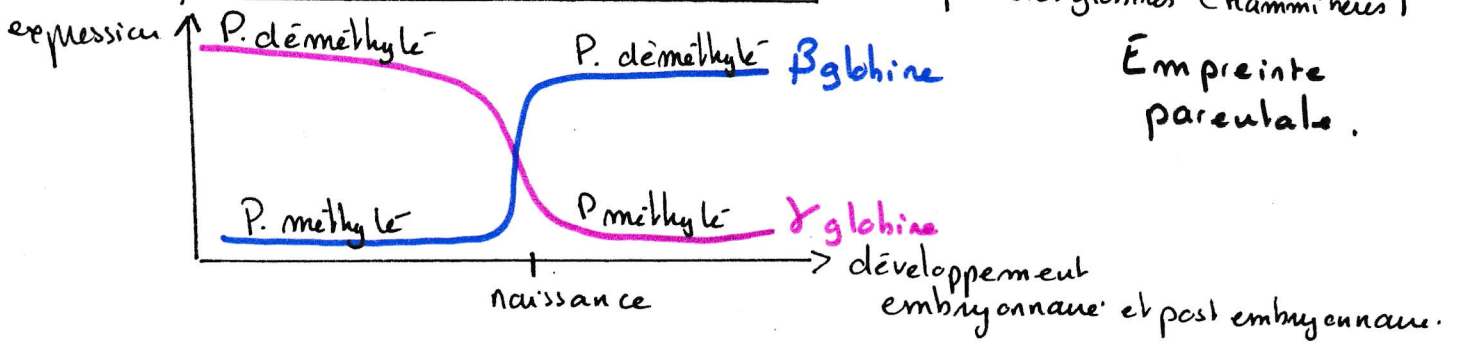 globines (Mammifères)
expression
P. déméthylé
P. déméthylé
β globine
Empreinte
parentale.
P. méthylé
P méthylé
γ globine
naissance
développement
embryonnaire et post embryonnaire.